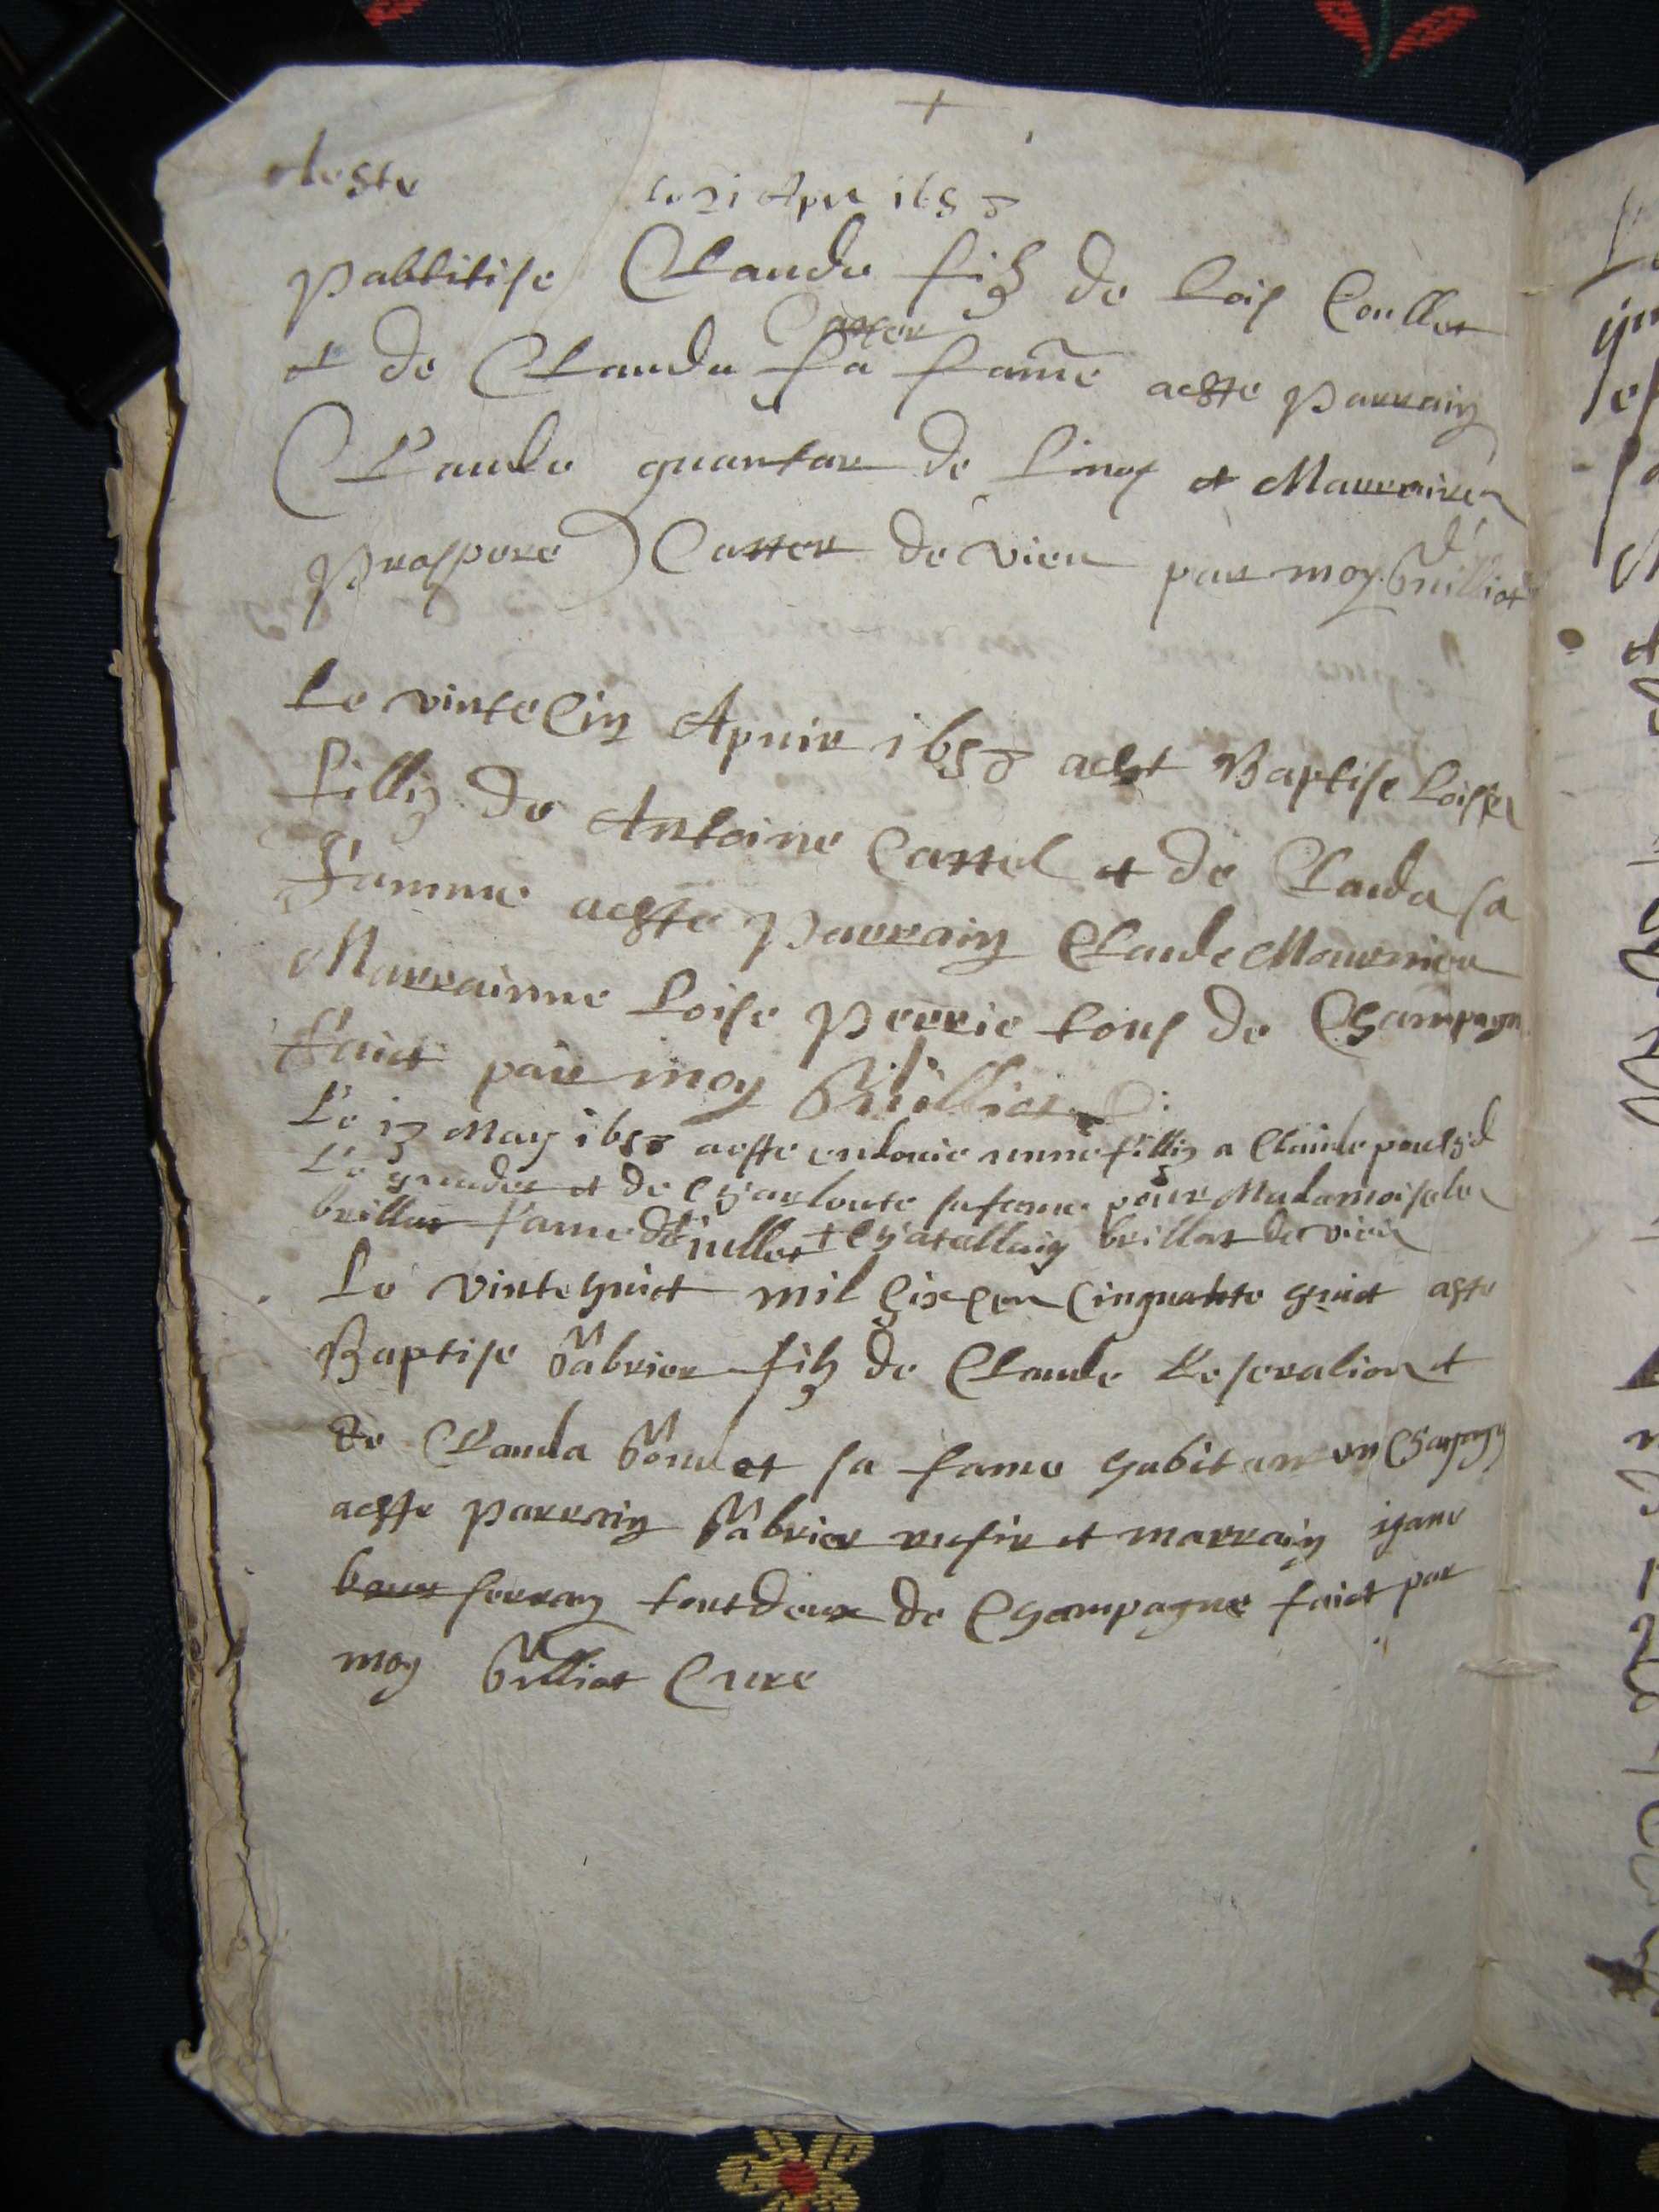 Aeste Le 21 Apvr 1658
pabtitise Claude fiz de Lois Coullet
Carrer
et de Clauda sa fame aeste parrain
Claude quartar de Linos et Marraine
prospere Carrer de vieu par moy Guilliot
Le vinte Cin Apvir 1658 aest Baptise Loise
fillie de Antoine Carrel et de Clauda sa
Famme aeste parrain Claude Mournier
Marrainne Loise perrie tous de Champagn
faict par moy Guilliot
Le 13 May 1658 aeste endouie unne fillie a Claude
et de Charloute sa fame pour Madamoisele
brillat fame de Chatellain brillat de vieu
Le vintehuict mil Six Cen Cinquante huict aste
Baptise Gabrier fiz de Claude
de Clauda Goudet sa fame habitan en Champagn
aeste parrain Gabrier et marrain
serran tout deux de Champagne faict par
moy Guilliot Cure